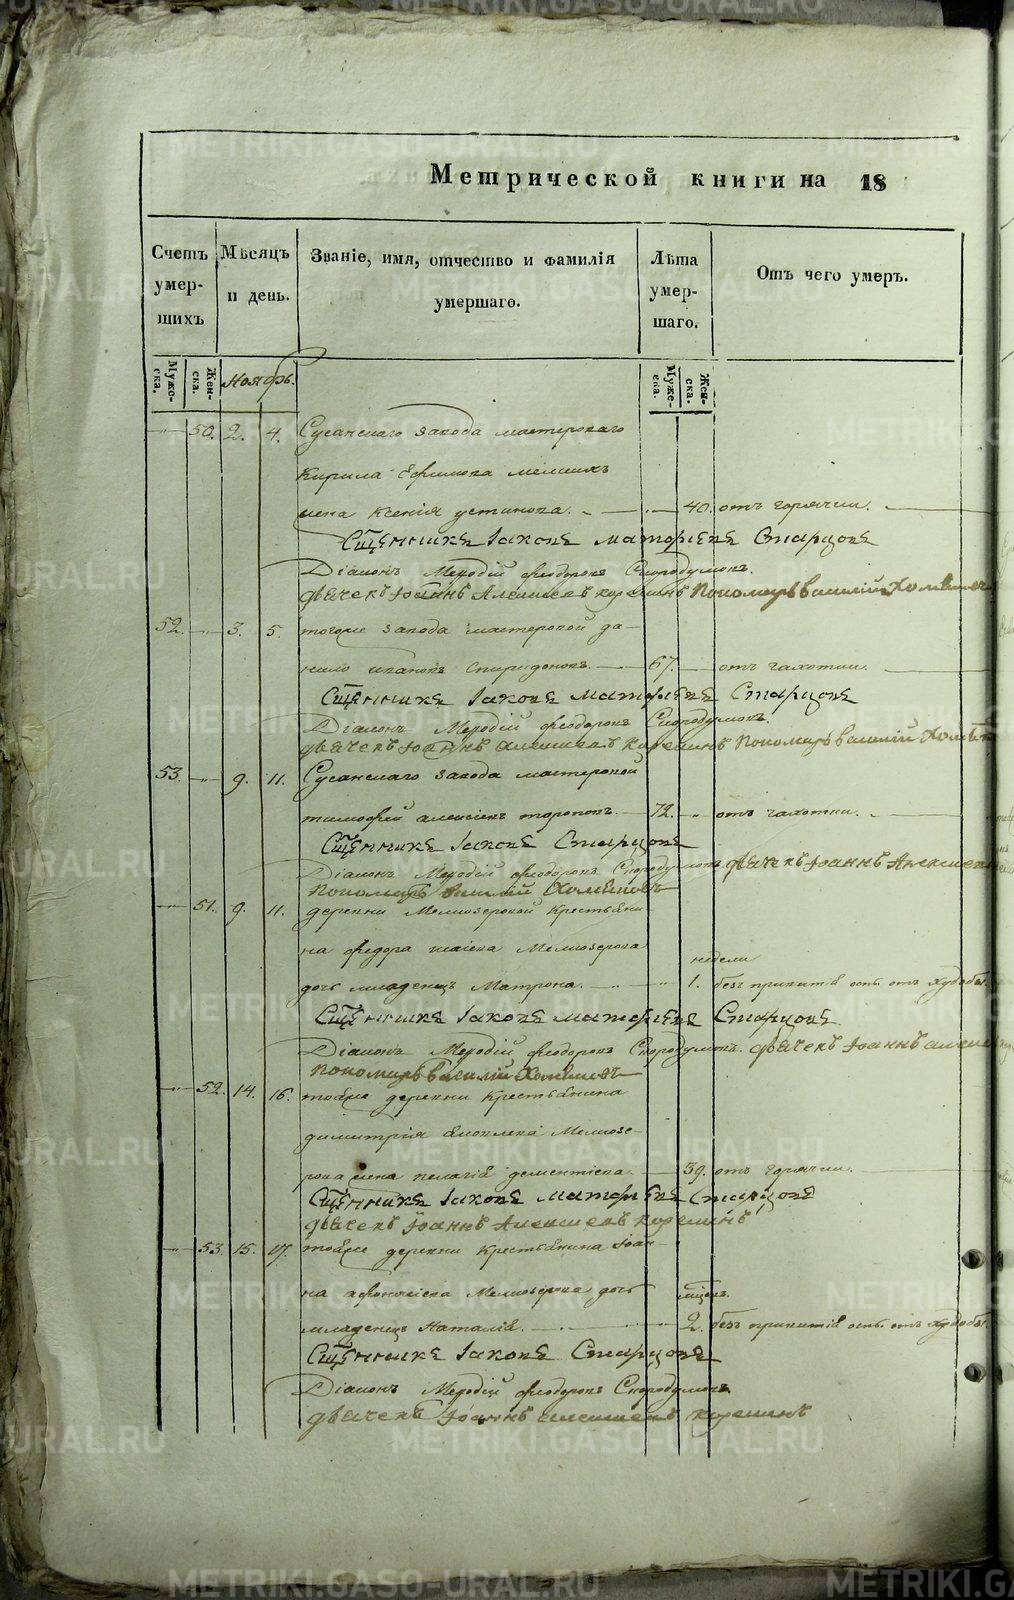 Метрической книги на 18
Счетъ умер- шихъ
Мѣсяцъ и день.
Званіе, имя, отчество и фамилія умершаго.
Лѣта умер- шаго.
Отъ чего умеръ.
Муже- ска.
Жен- ска.
Ноябрь.
Муже- ска.
Жен- ска.
50. 2. 4. Сусанскаго завода мастероваго
Кирила Ефимова
жена Ксенія устинова. 40. отъ горячки.
Сщенникъ Іаковъ Матфѣевъ Старцовъ
Діаконъ Меѳодій Феодоровъ Скородумовъ.
дьячекъ Іоаннъ Алексѣевъ Корелинъ Пономарь василій
52. 3. 5. тогоже завода мастеровой да-
нило ивановъ Спиридоновъ. 67. отъ чахотки.
Сщенникъ Іаковъ Матфѣевъ Старцовъ
Діаконъ Меѳодій Феодоровъ Скородумовъ.
дьячекъ Іоаннъ алексѣевъ Корелинъ Пономарь василій
53. 9. 11. Сусанскаго завода мастеровой
тимофей алексѣевъ тороповъ. 72. отъ чахотки.
Сщенникъ Іаковъ Старцовъ
Діаконъ Меѳодій Феодоровъ Скородумовъ. дьячекъ Іоаннъ Алексѣевъ
Пономарь василій
51. 9. 11. деревни Мелкозеровой Крестьяни-
на Федора исаіева Мелкозерова недели
дочь младенецъ Матрона. 1. безъ привитія оспы отъ худобы.
Сщенникъ Іаковъ Матфѣевъ Старцовъ
Діаконъ Меѳодій Феодоровъ Скородумовъ. дьячекъ Іоаннъ
Пономарь Василій
52. 14. 16. тойже деревни Крестьянина
димитрія Мелкозе-
рова жена пелагія дементіева. 39. отъ горячки.
Сщенникъ Іаковъ Матфѣевъ Старцовъ
дьячекъ Іоаннъ Алексѣевъ Корелинъ
53. 15. 17. тойже деревни Крестьянина Іоан-
на Мелкозерова дочь мѣсяца
младенецъ Наталія. 2. безъ привитія оспы отъ худобы.
Сщенникъ Іаковъ Старцовъ
Діаконъ Меѳодій Феодоровъ Скородумовъ.
дьячекъ Іоаннъ алексѣевъ Корелинъ
METRIKI.GASO-URAL.RU